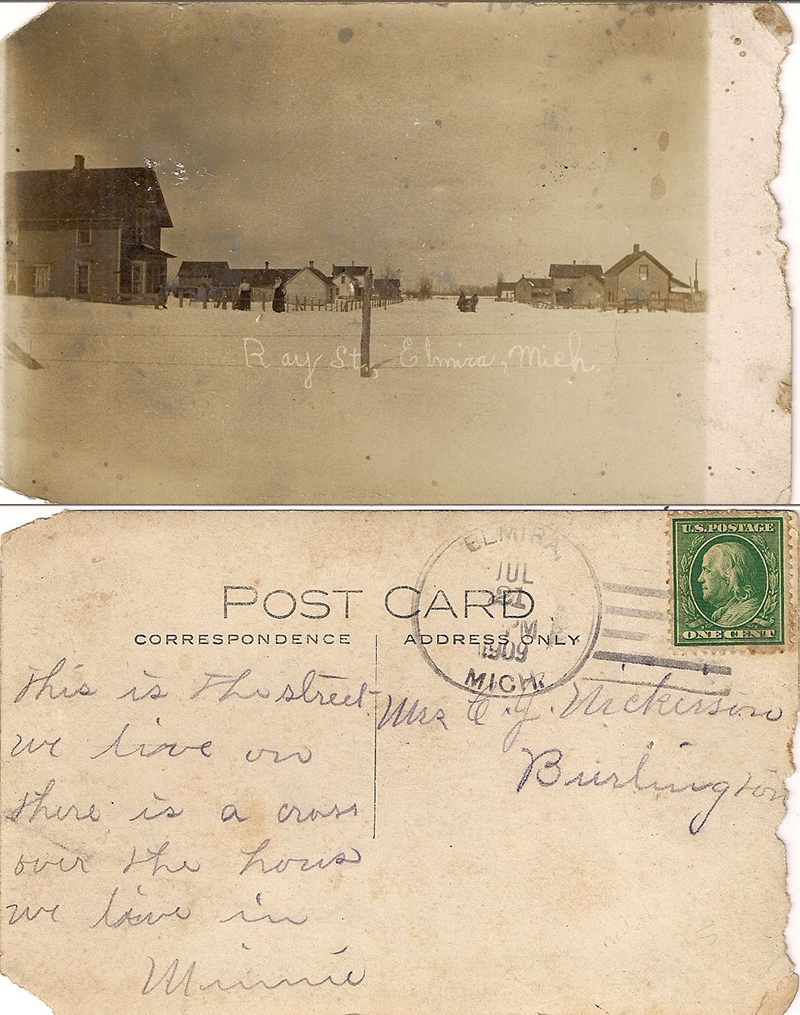 Ray St., Elmira, Mich.
ELMIRA,
JUL
21
PM
1909
MICH.
U.S. POSTAGE
ONE CENT
POST CARD
CORRESPONDENCE
ADDRESS ONLY
This is the street
we live on
there is a cross
over the hous
we live in
Minnie
Mrs C. J. Nickerson
Burlington